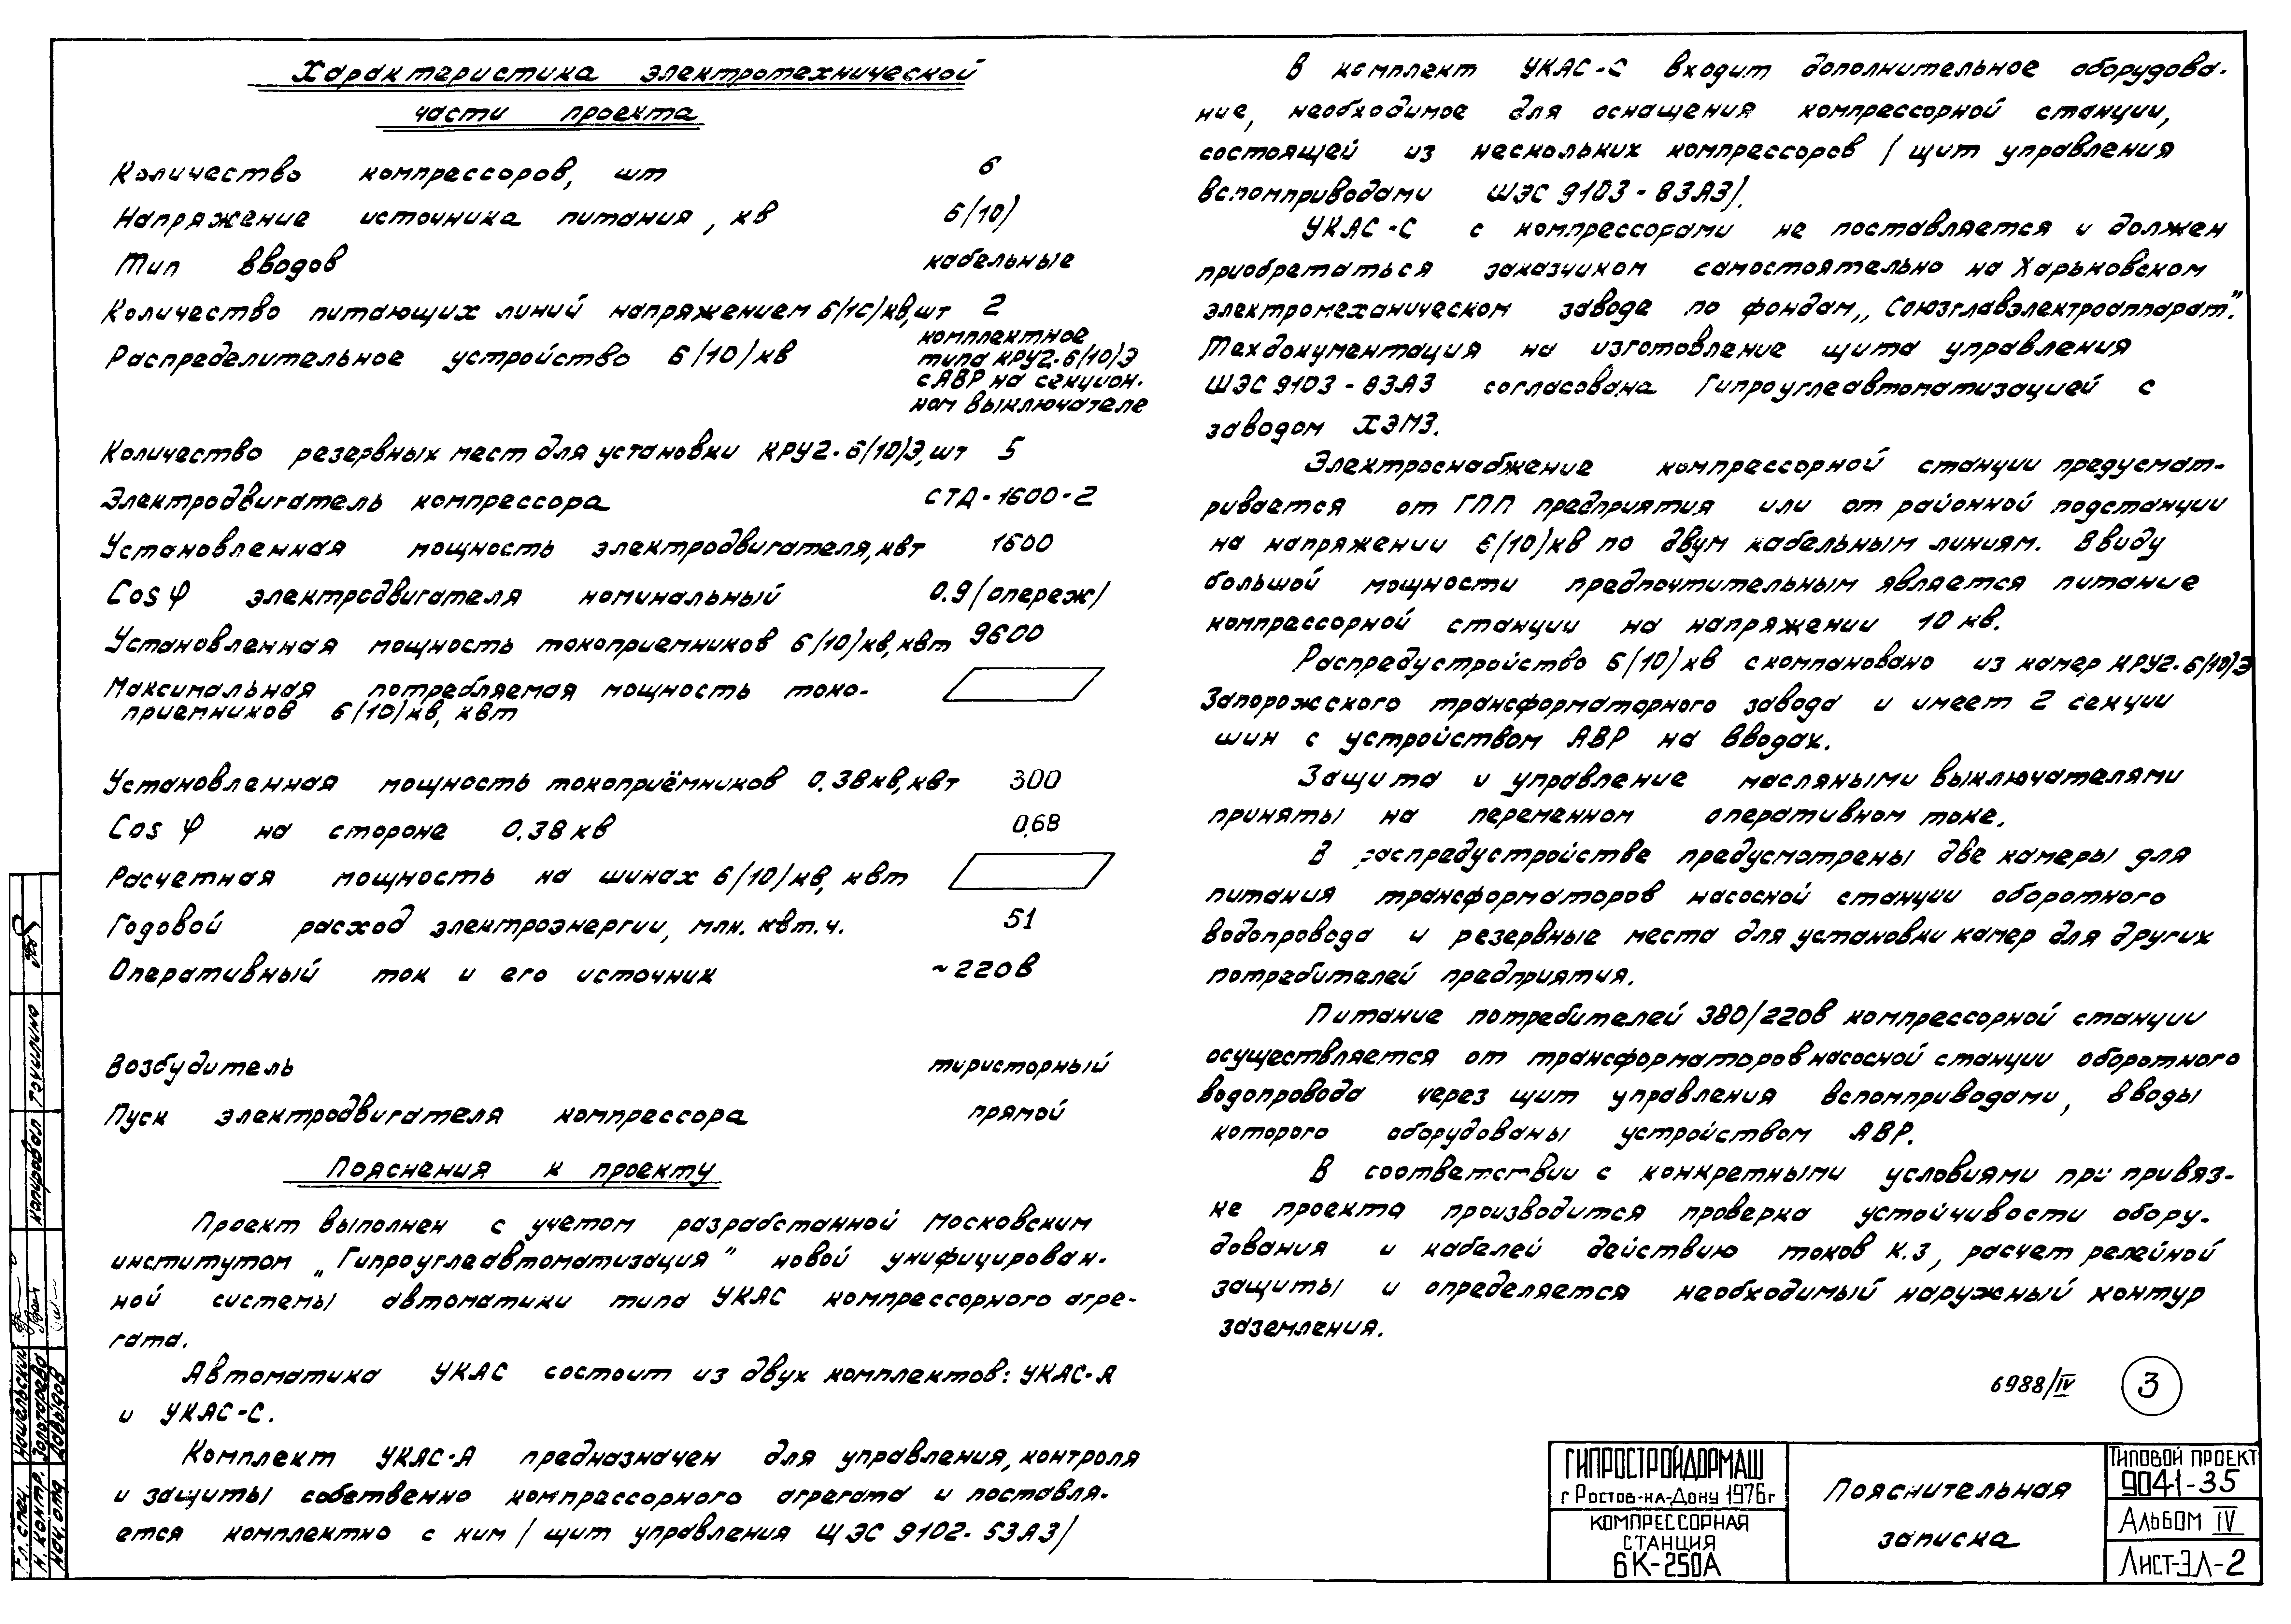 Характеристика электротехнической
части проекта
Количество компрессоров, шт 6
Напряжение источника питания, кв 6/10/
Тип вводов кабельные
Количество питающих линий напряжением 6/10/кв, шт 2
Распределительное устройство 6/10/кв комплектное
типа КРУ2-6/10/Э
с АВР на секцион-
ном выключателе
Количество резервных мест для установки КРУ2-6/10/Э, шт 5
Электродвигатель компрессора СТД-1600-2
Установленная мощность электродвигателя, квт 1600
Cos φ электродвигателя номинальный 0.9/опереж/
Установленная мощность токоприемников 6/10/кв, квт 9600
Максимальная потребляемая мощность токо-
приемников 6/10/кв, квт
Установленная мощность токоприёмников 0.38кв, квт 300
Cos φ на стороне 0.38 кв 0,68
Расчетная мощность на шинах 6/10/кв, квт
Годовой расход электроэнергии, млн. квт.ч. 51
Оперативный ток и его источник ~220в
Возбудитель тиристорный
Пуск электродвигателя компрессора прямой
Пояснения к проекту
Проект выполнен с учетом разработанной Московским
институтом „Гипроуглеавтоматизация" новой унифицирован-
ной системы автоматики типа УКАС компрессорного агре-
гата.
Автоматика УКАС состоит из двух комплектов: УКАС-А
и УКАС-С.
Комплект УКАС-А предназначен для управления, контроля
и защиты собственно компрессорного агрегата и поставля-
ется комплектно с ним /щит управления ЩЭС 9102-53А3/
В комплект УКАС-С входит дополнительное оборудова-
ние, необходимое для оснащения компрессорной станции,
состоящей из нескольких компрессоров /щит управления
вспомприводами ШЭС 9103-83А3/.
УКАС-С с компрессорами не поставляется и должен
приобретаться заказчиком самостоятельно на Харьковском
электромеханическом заводе по фондам „Союзглавэлектроаппарат".
Техдокументация на изготовление щита управления
ШЭС 9103-83А3 согласована Гипроуглеавтоматизацией с
заводом ХЭМЗ.
Электроснабжение компрессорной станции предусмат-
ривается от ГПП предприятия или от районной подстанции
на напряжении 6/10/кв по двум кабельным линиям. Ввиду
большой мощности предпочтительным является питание
компрессорной станции на напряжении 10 кв.
Распредустройство 6/10/кв скомпановано из камер КРУ2-6/10/Э
Запорожского трансформаторного завода и имеет 2 секции
шин с устройством АВР на вводах.
Защита и управление масляными выключателями
приняты на переменном оперативном токе.
В распредустройстве предусмотрены две камеры для
питания трансформаторов насосной станции оборотного
водопровода и резервные места для установки камер для других
потребителей предприятия.
Питание потребителей 380/220в компрессорной станции
осуществляется от трансформаторов насосной станции оборотного
водопровода через щит управления вспомприводами, вводы
которого оборудованы устройством АВР.
В соответствии с конкретными условиями при привяз-
ке проекта производится проверка устойчивости обору-
дования и кабелей действию токов к.з, расчет релейной
защиты и определяется необходимый наружный контур
заземления.
6988/IV 3
ГИПРОСТРОЙДОРМАШ
г Ростов-на-Дону 1976г
КОМПРЕССОРНАЯ
СТАНЦИЯ
6К-250А
Пояснительная
записка
Типовой проект
9041-35
Альбом IV
Лист-ЭЛ-2
Гл. спец.
Н. контр. Золотарева
Нач. отд. Давыдов
копировал